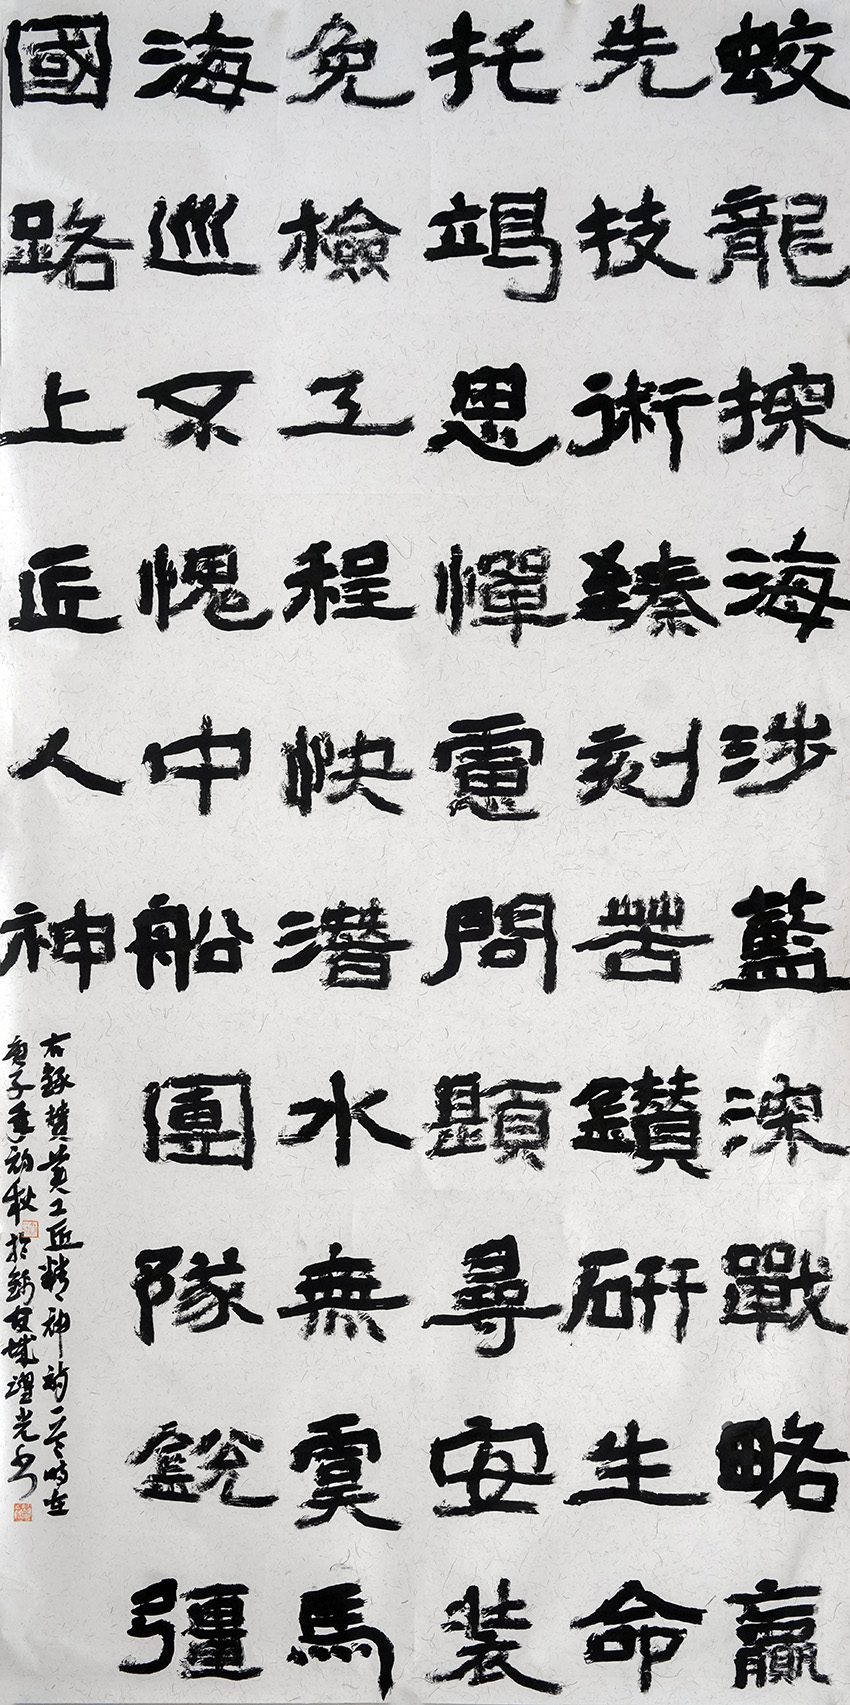 蛟龍探海涉藍深戰略贏
先技術臻刻苦鑽研生命
托竭思憚慮問題尋安裝
免檢工程快潛水無虞馬
海巡不愧中船團隊銳彊
國路上匠人神
右錄贊黄工匠精神詩一首時在
庚子年初秋於錦官城光書